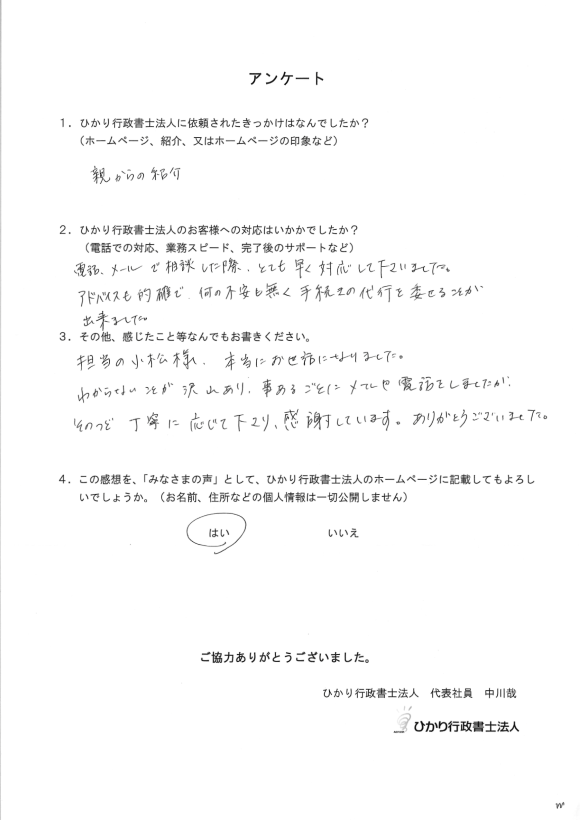 アンケート
1．ひかり行政書士法人に依頼されたきっかけはなんでしたか？
（ホームページ、紹介、又はホームページの印象など）
親からの紹介
2．ひかり行政書士法人のお客様への対応はいかかでしたか？
（電話での対応、業務スピード、完了後のサポートなど）
電話、メールで相談した際、とても早く対応して下さいました。
アドバイスも的確で、何の不安も無く手続きの代行を委せることが
出来ました。
3．その他、感じたこと等なんでもお書きください。
担当の小松様、本当にお世話になりました。
わからないことが沢山あり、事あるごとにメールや電話をしましたが、
そのつど丁寧に応じて下さり、感謝しています。ありがとうございました。
4．この感想を、「みなさまの声」として、ひかり行政書士法人のホームページに記載してもよろし
いでしょうか。（お名前、住所などの個人情報は一切公開しません）
はい　いいえ
ご協力ありがとうございました。
ひかり行政書士法人　代表社員　中川哉
ひかり行政書士法人